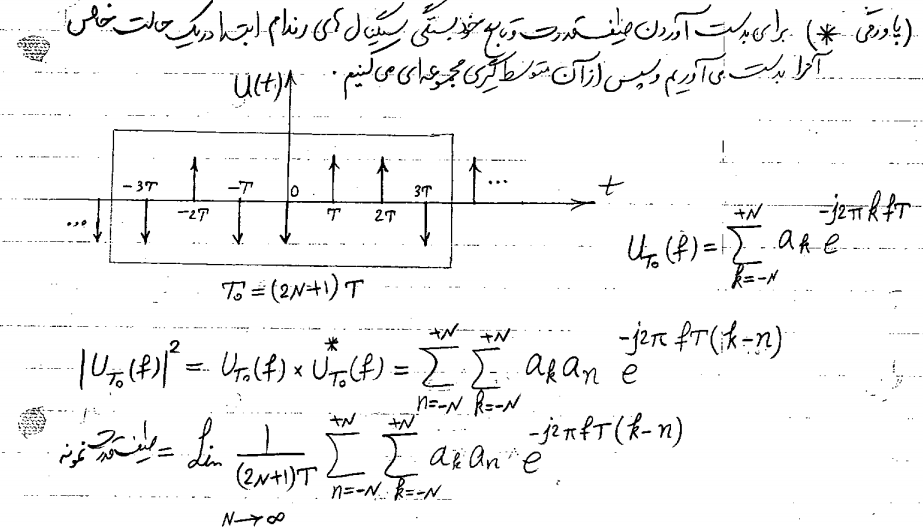 (پاورقی *) برای بدست آوردن طیف قدرت و تابع خودبستگی سیگنال های رندم ابتدا در یک حالت خاص
آنرا بدست می آوریم و سپس از آن متوسط گیری مجموعه ای می کنیم .
U(t)
-3T -2T -T 0 T 2T 3T ... t
...
T₀ = (2N+1) T
U_{T₀}(f) = \sum_{k=-N}^{+N} a_k e^{-j2πkfT}
|U_{T₀}(f)|² = U_{T₀}(f) × U*_{T₀}(f) = \sum_{n=-N}^{+N} \sum_{k=-N}^{+N} a_k a_n e^{-j2πfT(k-n)}
طیف قدرت نمونه = Lim_{N→∞} \frac{1}{(2N+1)T} \sum_{n=-N}^{+N} \sum_{k=-N}^{+N} a_k a_n e^{-j2πfT(k-n)}